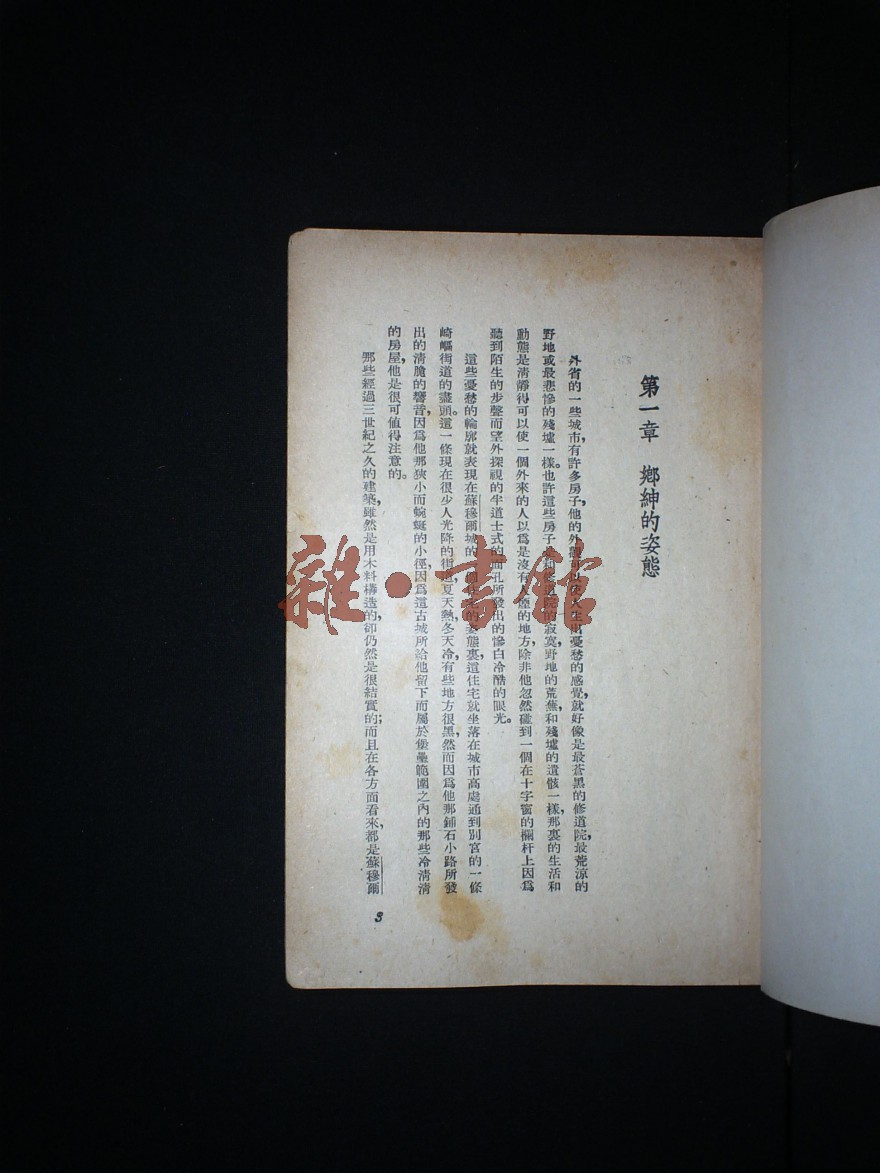 第一章 鄉紳的姿態
外省的一些城市，有許多房子，他的外觀可以使人生出憂愁的感覺，就好像是最蒼黑的修道院，最荒涼的
野地或最悲慘的殘墟一樣。也許這些房子是和修道院的寂寞野地的荒蕪，和殘墟的遺骸一樣，那裏的生活和
動態是清靜得可以使一個外來的人以爲是沒有人煙的地方，除非他忽然碰到一個在十字窗的欄杆上因爲
聽到陌生的步聲而望外探視的半道士式的面孔所發出的慘白冷酷的眼光。
這些憂愁的輪廓就表現在蘇穆爾城的一個住宅的姿態裏，這住宅就坐落在城市高處通到別宮的一條
崎嶇街道的盡頭。這一條現在很少人光降的街道，夏天熱，冬天冷，有些地方很黑，然而因爲他那鋪石小路所發
出的清脆的響音，因爲他那狹小而蜿蜒的小徑，因爲這古城所給他留下而屬於堡壘範圍之內的那些冷清清
的房屋，他是很可值得注意的。
那些經過三世紀之久的建築，雖然是用木料構造的，卻仍然是很結實的；而且在各方面看來，都是蘇穆爾
3
雜·書館